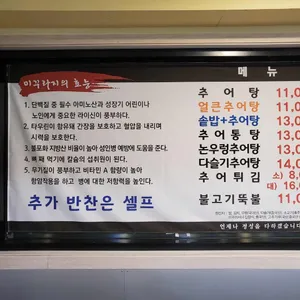 미꾸라지의 효능
1. 단백질 중 필수 아미노산과 성장기 어린이나
노인에게 중요한 라이신이 풍부하다.
2. 타우린이 함유돼 간장을 보호하고 혈압을 내리며
시력을 보호한다.
3. 불포화 지방산 비율이 높아 성인병 예방에 도움을 준다.
4. 뼈째 먹기에 칼슘의 섭취원이 된다.
5. 무기질이 풍부하고 비타민 A 함량이 높아
항암작용을 하고 병에 대한 저항력을 높인다.
추가 반찬은 셀프
메뉴
추어탕 11,0
얼큰추어탕 11,0
솥밥+추어탕 13,0
추어통탕 13,0
논우렁추어탕 13,0
다슬기추어탕 14,0
추어튀김 소) 8,0
대) 16,0
불고기뚝불 11,0
언제나 정성을 다하겠습니다